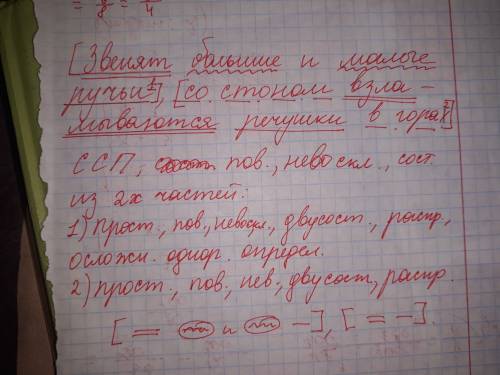 = — = —
8 4
[Звенят большие и малые
ручьи¹], [со стоном взла-
мываются речушки в горах²]
ССП, пов., невоскл., сост.
из 2х частей:
1) Прост., пов., невоскл., двусост., распр.,
осложн. однор. определ.
2) прост., пов., нев., двусост., распр.
[ = и – ], [ = – ].